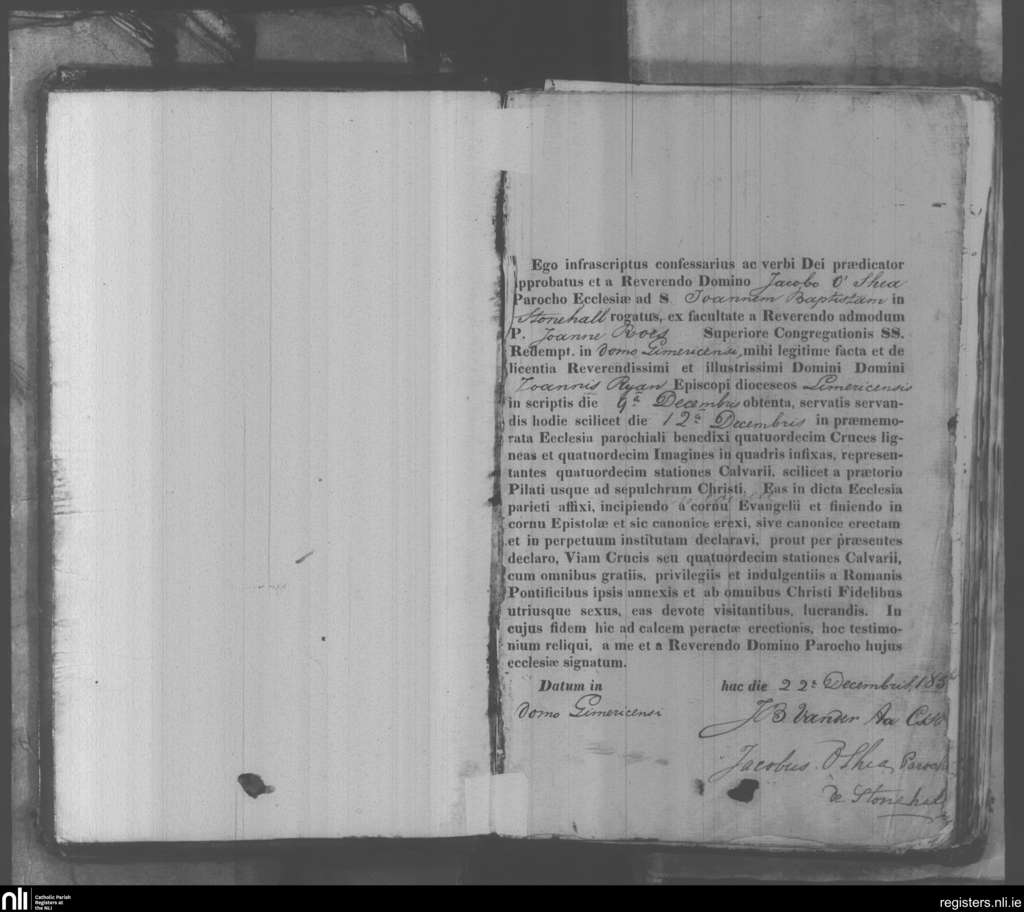 Ego infrascriptus confessarius ac verbi Dei prædicator
pprobatus et a Reverendo Domino Jacobo O'Shea
Parocho Ecclesiæ ad S. Joannem Baptistam in
Stonehall rogatus, ex facultate a Reverendo admodum
P. Joanne Roes Superiore Congregationis SS.
Redempt. in domo Limericensi, mihi legitime facta et de
licentia Reverendissimi et illustrissimi Domini Domini
Joannis Ryan Episcopi dioceseos Limericensis
in scriptis die 9a Decembris obtenta, servatis servan-
dis hodie scilicet die 12a Decembris in præmemo-
rata Ecclesia parochiali benedixi quatuordecim Cruces lig-
neas et quatuordecim Imagines in quadris infixas, represen-
tantes quatuordecim stationes Calvarii, scilicet a prætorio
Pilati usque ad sepulchrum Christi. Eas in dicta Ecclesia
parieti affixi, incipiendo a cornu Evangelii et finiendo in
cornu Epistolæ et sic canonice erexi, sive canonice erectam
et in perpetuum institutam declaravi, prout per præsentes
declaro, Viam Crucis seu quatuordecim stationes Calvarii,
cum omnibus gratiis, privilegiis et indulgentiis a Romanis
Pontificibus ipsis annexis et ab omnibus Christi Fidelibus
utriusque sexus, eas devote visitantibus, lucrandis. In
cujus fidem hic ad calcem peractæ erectionis, hoc testimo-
nium reliqui, a me et a Reverendo Domino Parocho hujus
ecclesiæ signatum.
Datum in hac die 22a Decembris, 185
domo Limericensi
J B Vander Aa
Jacobus O'Shea Parochus
de Stonehall
nli Catholic Parish
Registers at
the NLI
registers.nli.ie